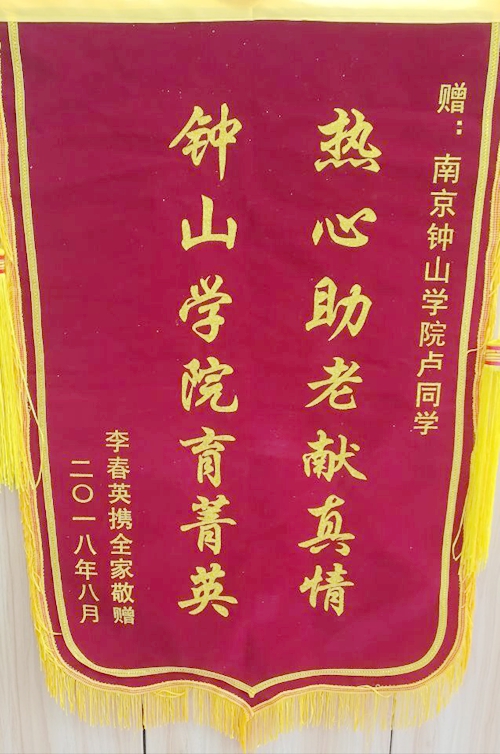 赠：南京钟山学院卢同学
热心助老献真情
钟山学院育菁英
李春英携全家敬赠
二〇一八年八月